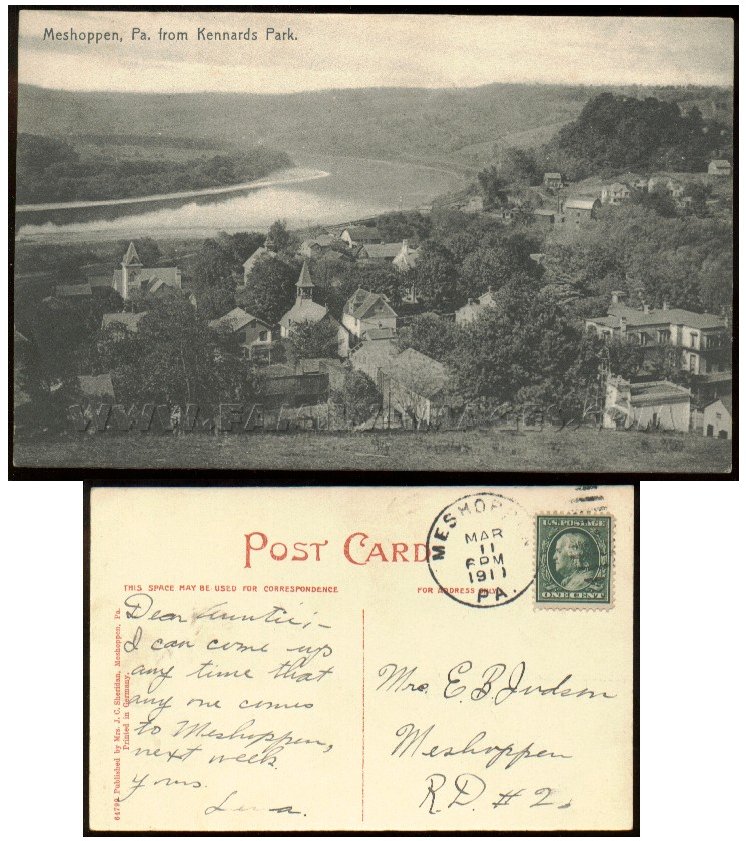 Meshoppen, Pa. from Kennards Park.
POST CARD
THIS SPACE MAY BE USED FOR CORRESPONDENCE
FOR ADDRESS ONLY
MESHOPP
MAR
11
6 PM
1911
PA.
U.S. POSTAGE
ONE CENT
Dear Auntie;-
I can come up
any time that
any one comes
to Meshoppen,
next week.
Yours
Lena.
Mrs. E. B. Judson
Meshoppen
R.D. #2.
64792 Published by Mrs. J. C. Sheridan, Meshoppen, Pa.
Printed in Germany.